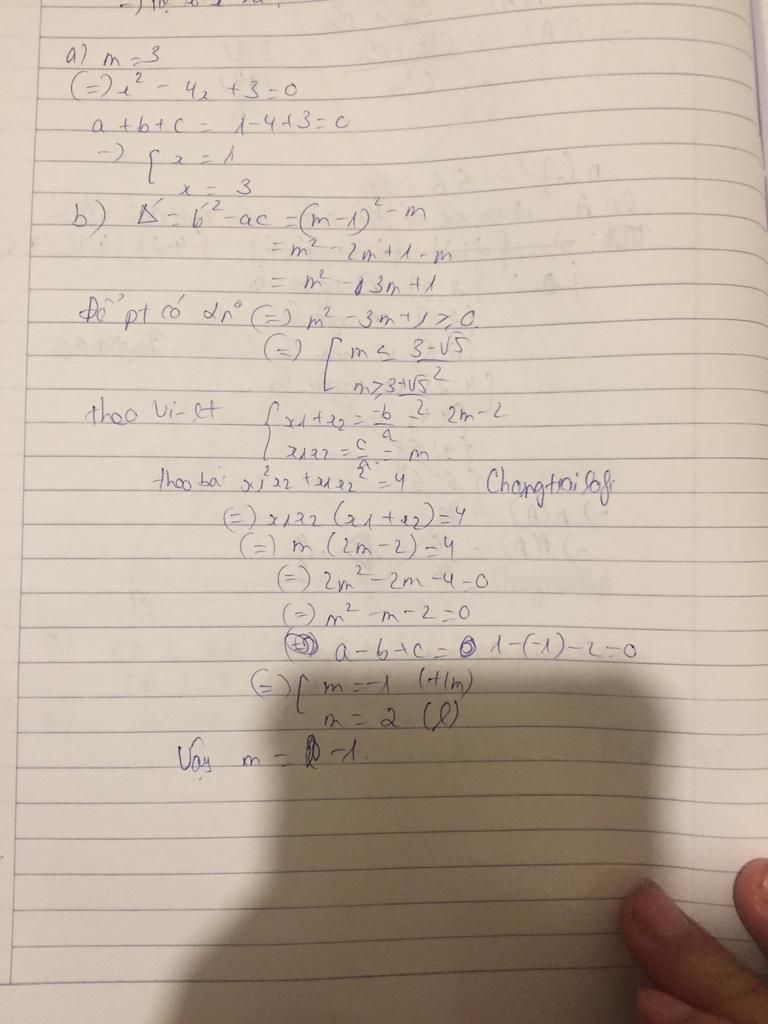 a) m = 3
(=) x² - 4x + 3 = 0
a + b + c = 1 - 4 + 3 = 0
-) [ x = 1
x = 3
b) Δ' = b'² - ac = (m - 1)² - m
= m² - 2m + 1 - m
= m² - 3m + 1
Để pt có 2n° (=) m² - 3m + 1 ≥ 0
(=) [ m ≤ 3-√5/2
m ≥ 3+√5/2
theo Vi-ét { x1 + x2 = -b/a = 2m - 2
x1x2 = c/a = m.
theo bài x1²x2 + x1x2² = 4 Changtraisofi
(=) x1x2 (x1 + x2) = 4
(=) m . (2m - 2) = 4
(=) 2m² - 2m - 4 = 0
(=) m² - m - 2 = 0
a - b + c = 1 - (-1) - 2 = 0
(=) [ m = -1 (t/m)
m = 2 (l)
Vậy m = -1.